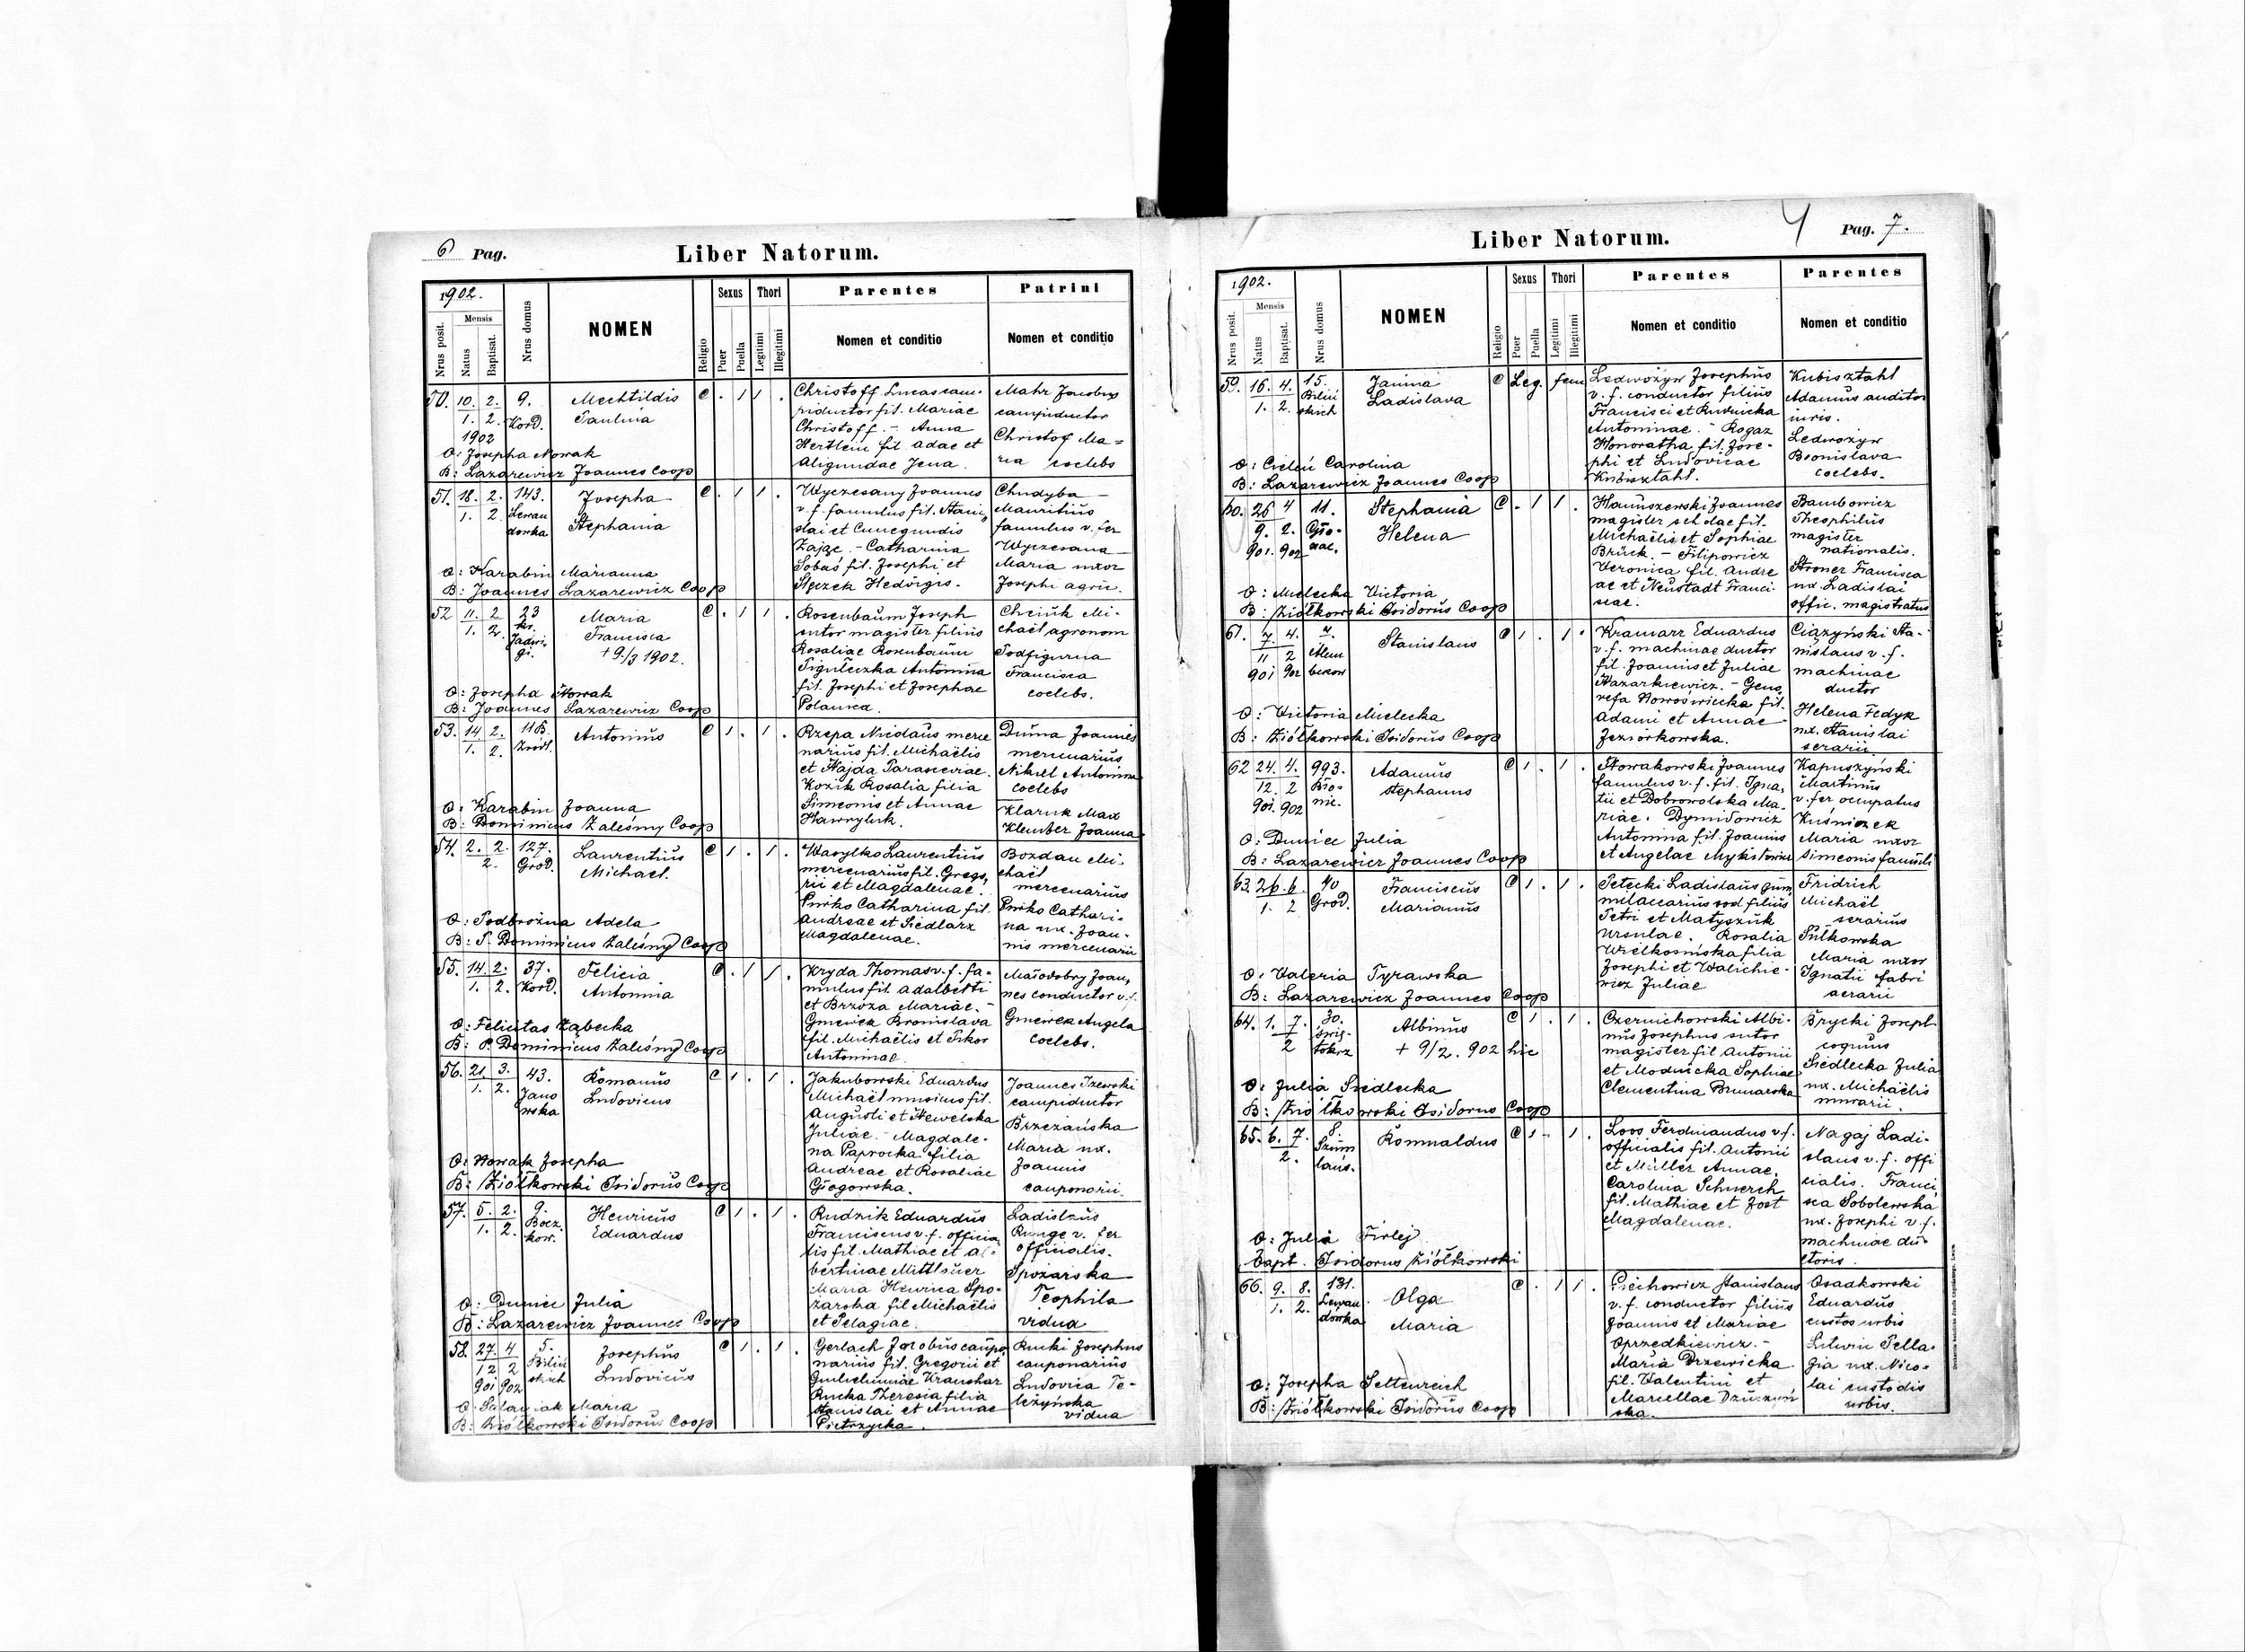 6 Pag.
Liber Natorum.
1902.
Nrus posit.
Mensis
Natus
Baptisat.
Nrus domus
NOMEN
Religio
Sexus
Puer
Puella
Thori
Legitimi
Illegitimi
Parentes
Nomen et conditio
Patrini
Nomen et conditio
50. 10. 2. 9. Mechtildis C . 1 1 .
1. 2. Kord. Paulina
1902
O: Josepha Nowak
B: Lazarewicz Joannes Coop
Christoff Lucas cam-
piductor fil. Mariae
Christoff. - Anna
Hertlein fil. Adae et
Aligundae Jena.
Mahr Jacobus
campiductor
Christof Ma=
ria coelebs
51. 18. 2. 143. Josepha C . 1 1 .
1. 2. Lewan
dowka Stephania
O: Karabin Marianna
B: Joannes Lazarewicz Coop
Wyczesany Joannes
v. f. famulus fil. Stani„
slai et Cunegundis
Zając. - Catharina
Sobas fil. Josephi et
Stęczek Hedvigis.
Chudyba
Mauritius
famulus v. fer
Wyczesana
Maria uxor
Josephi agric.
52 11. 2. 23 Maria C . 1 1 .
1. 2. kr.
Jadwi
gi. Francisca
+ 9./3 1902.
O: Josepha Nowak
B: Joannes Lazarewicz Coop
Rosenbaum Joseph
sutor magister filius
Rosaliae Rosenbaum
Pigułeczka Antonina
fil. Josephi et Josephae
Polanica.
Chciuk Mi-
chael agronom
Podfigurna
Francisca
coelebs.
53. 14. 2. 116. Antonius C 1 . 1 .
1. 2. Zródl.
O: Karabin Joanna
B: Dominicus Zaleśny Coop
Rzepa Nicolaus merce
narius fil. Michaëlis
et Hajda Parasceviae.
Kozik Rosalia filia
Simeonis et Annae
Hawryluk.
Duma Joannes
mercenarius
Nikiel Antonina
coelebs
Klaruk Max
Kleuber Joanna
54. 2. 2. 127. Laurentius C 1 . 1 .
2. Grod. Michael.
O: Podbrożna Adela
B: P. Dominicus Zaleśny Coop
Wasylko Laurentius
mercenarius fil. Grego„
rii et Magdalenae.
Pirko Catharina fil.
Andreae et Siedlarz
Magdalenae.
Bozdau Mi-
chaël
mercenarius
Pirko Cathari-
na ux. Joan-
nis mercenarii
55. 14. 2. 37. Felicia C . 1 1 .
1. 2. Kord. Antonina
O: Felicitas Ząbecka
B: P. Dominicus Zaleśny Coop
Kryda Thomas v. f. fa-
mulus fil. Adalberti
et Brzoza Mariae. -
Gmerek Bronislava
fil. Michaëlis et Sikor
Antoninae.
Małodobry Joan„
nes conductor v. f.
Gmerek Angela
coelebs.
56. 21. 3. 43. Romanus C 1 . 1 .
1. 2. Jano
wska Ludovicus
O: Nowak Josepha
B: Ziółkowski Isidorus Coop
Jakubowski Eduardus
Michaël musicus fil.
Augusti et Newelska
Juliae. - Magdale-
na Paprocka filia
Andreae et Rosaliae
Głogowska.
Joannes Izewski
campiductor
Brzezańska
Maria ux.
Joannis
cauponarii.
57. 5. 2. 9. Henricus C 1 . 1 .
1. 2. Bocz.
kow. Eduardus
O: Duniec Julia
B: Lazarewicz Joannes Coop
Rudzik Eduardus
Franciscus v. f. officia„
lis fil. Mathiae et Al-
bertinae Mittlsuer
Maria Henrica Spo-
żarska fil Michaëlis
et Pelagiae.
Ladislaus
Runge v. fer
officialis.
Spożarska
Teophila
vidua
58. 27. 4 5. Josephus C 1 . 1 .
12 2 Bilin
skich Ludovicus
901 902
O: Maria
B: Ziółkowski Isidorus Coop
Gerlach Jacobus caupo„
narius fil. Gregorii et
Gulielminae Kraushar
Rucka Theresia filia
Stanislai et Annae
Pietrzycka.
Rucki Josephus
cauponarius
Ludovica Te-
liżyńska
vidua
Liber Natorum.
Pag. 7.
1902.
Nrus posit.
Mensis
Natus
Baptisat.
Nrus domus
NOMEN
Religio
Sexus
Puer
Puella
Thori
Legitimi
Illegitimi
Parentes
Nomen et conditio
Parentes
Nomen et conditio
59. 16. 4. 15. Janina C Leg. fem
1. 2. Biliń
skich Ladislava
O: Cicleń Carolina
B: Lazarewicz Joannes Coop
Ledwożyw Josephus
v. f. conductor filius
Francisci et Rudnicka
Antoninae. - Rogaz
Honoratha fil. Jose-
phi et Ludovicae
Kubisztahl.
Kubisztahl
Adamus auditor
iuris.
Ledwożyw
Bronislava
coelebs.
60. 26 4 11. Stephania C . 1 1 .
9. 2. Gro- Helena
901. 902
O: Mielecka Victoria
B: Ziółkowski Isidorus Coop
Hanuszewski Joannes
magister scholae fil.
Michaëlis et Sophiae
Brück. - Filipowicz
Veronica fil. Andre
ae et Neustadt Franci-
scae.
Bambowicz
Theophilus
magister
nationalis.
Stroner Francisca
ux. Ladislai
offic. magistratus
61. 7. 4. 7. Stanislaus C 1 . 1 .
11 2 Klem
901 902 berow
O: Victoria Mielecka
B: Ziółkowski Isidorus Coop
Kramarz Eduardus
v. f. machinae ductor
fil. Joannis et Juliae
Nazarkiewicz. - Geno„
vefa Nowoświecka fil.
Adami et Annae
Jeziorkowska.
Ciązyński Sta-
nislaus v. f.
machinae
ductor
Helena Fedyk
ux. Stanislai
serarii.
62 24. 4. 993. Adamus C 1 . 1 .
12. 2 Bło-
901. 902 nie. Stephanus
O: Duniec Julia
B: Lazarewicz Joannes Coop
Nowakowski Joannes
famulus v. f. fil. Igna„
tii et Dobrowolska Ma„
riae. Dymidowicz
Antonina fil. Joannis
et Angelae Mykitowicz
Kapuszyński
Martinus
v. fer occupatus
Kuśniozek
Maria uxor
Simeonis famuli
63. 26. 6. 40 Franciscus C 1 . 1 .
1. 2 Grod. Marianus
O: Valeria Tyrawska
B: Lazarewicz Joannes Coop
Petecki Ladislaus gum„
milaccarius vod filius
Petri et Matyszuk
Ursulae. Rosalia
Wielkosińska filia
Josephi et Walichie-
wicz Juliae
Fridrich
Michaël
serarius
Sułkowska
Maria uxor
Ignatii fabri
aerarii
64. 1. 7. 30. Albinus C 1 . 1 .
2 Swię-
tokrz + 9/2. 902 hic
O: Julia Siedlecka
B: Ziółkowski Isidorus Coop
Czernichowski Albi-
nus Josephus sutor
magister fil Antonii
et Modnicka Sophiae
Clementina Brunarska
Brycki Joseph
coquus
Siedlecka Julia
ux. Michaëlis
murarii.
65. 6. 7. 8. Romualdus C 1 . 1 .
2. Szum
lans.
O: Julia Firlej
Bapt. Isidorus Ziółkowski
Loos Ferdinandus v. f.
officialis fil. Antonii
et Müller Annae.
Carolina Schnerch
fil. Mathiae et Jost
Magdalenae.
Nagaj Ladi-
slaus v. f. offi
cialis. Franci„
sca Sobolewska
ux. Josephi v. f.
machinae du-
ctoris.
66. 9. 8. 131. Olga C . 1 1 .
1. 2. Lewan
dówka Maria
O: Josepha Seltenreich
B: Ziółkowski Isidorus Coop
Piechowicz Stanislaus
v. f. conductor filius
Joannis et Mariae
Oprzedkiewicz. -
Maria Drzewicka
fil. Valentini et
Marcellae
ska.
Osadkowski
Eduardus
custos urbis
Litwin Pella-
gia ux. Nico-
lai custodis
urbis.